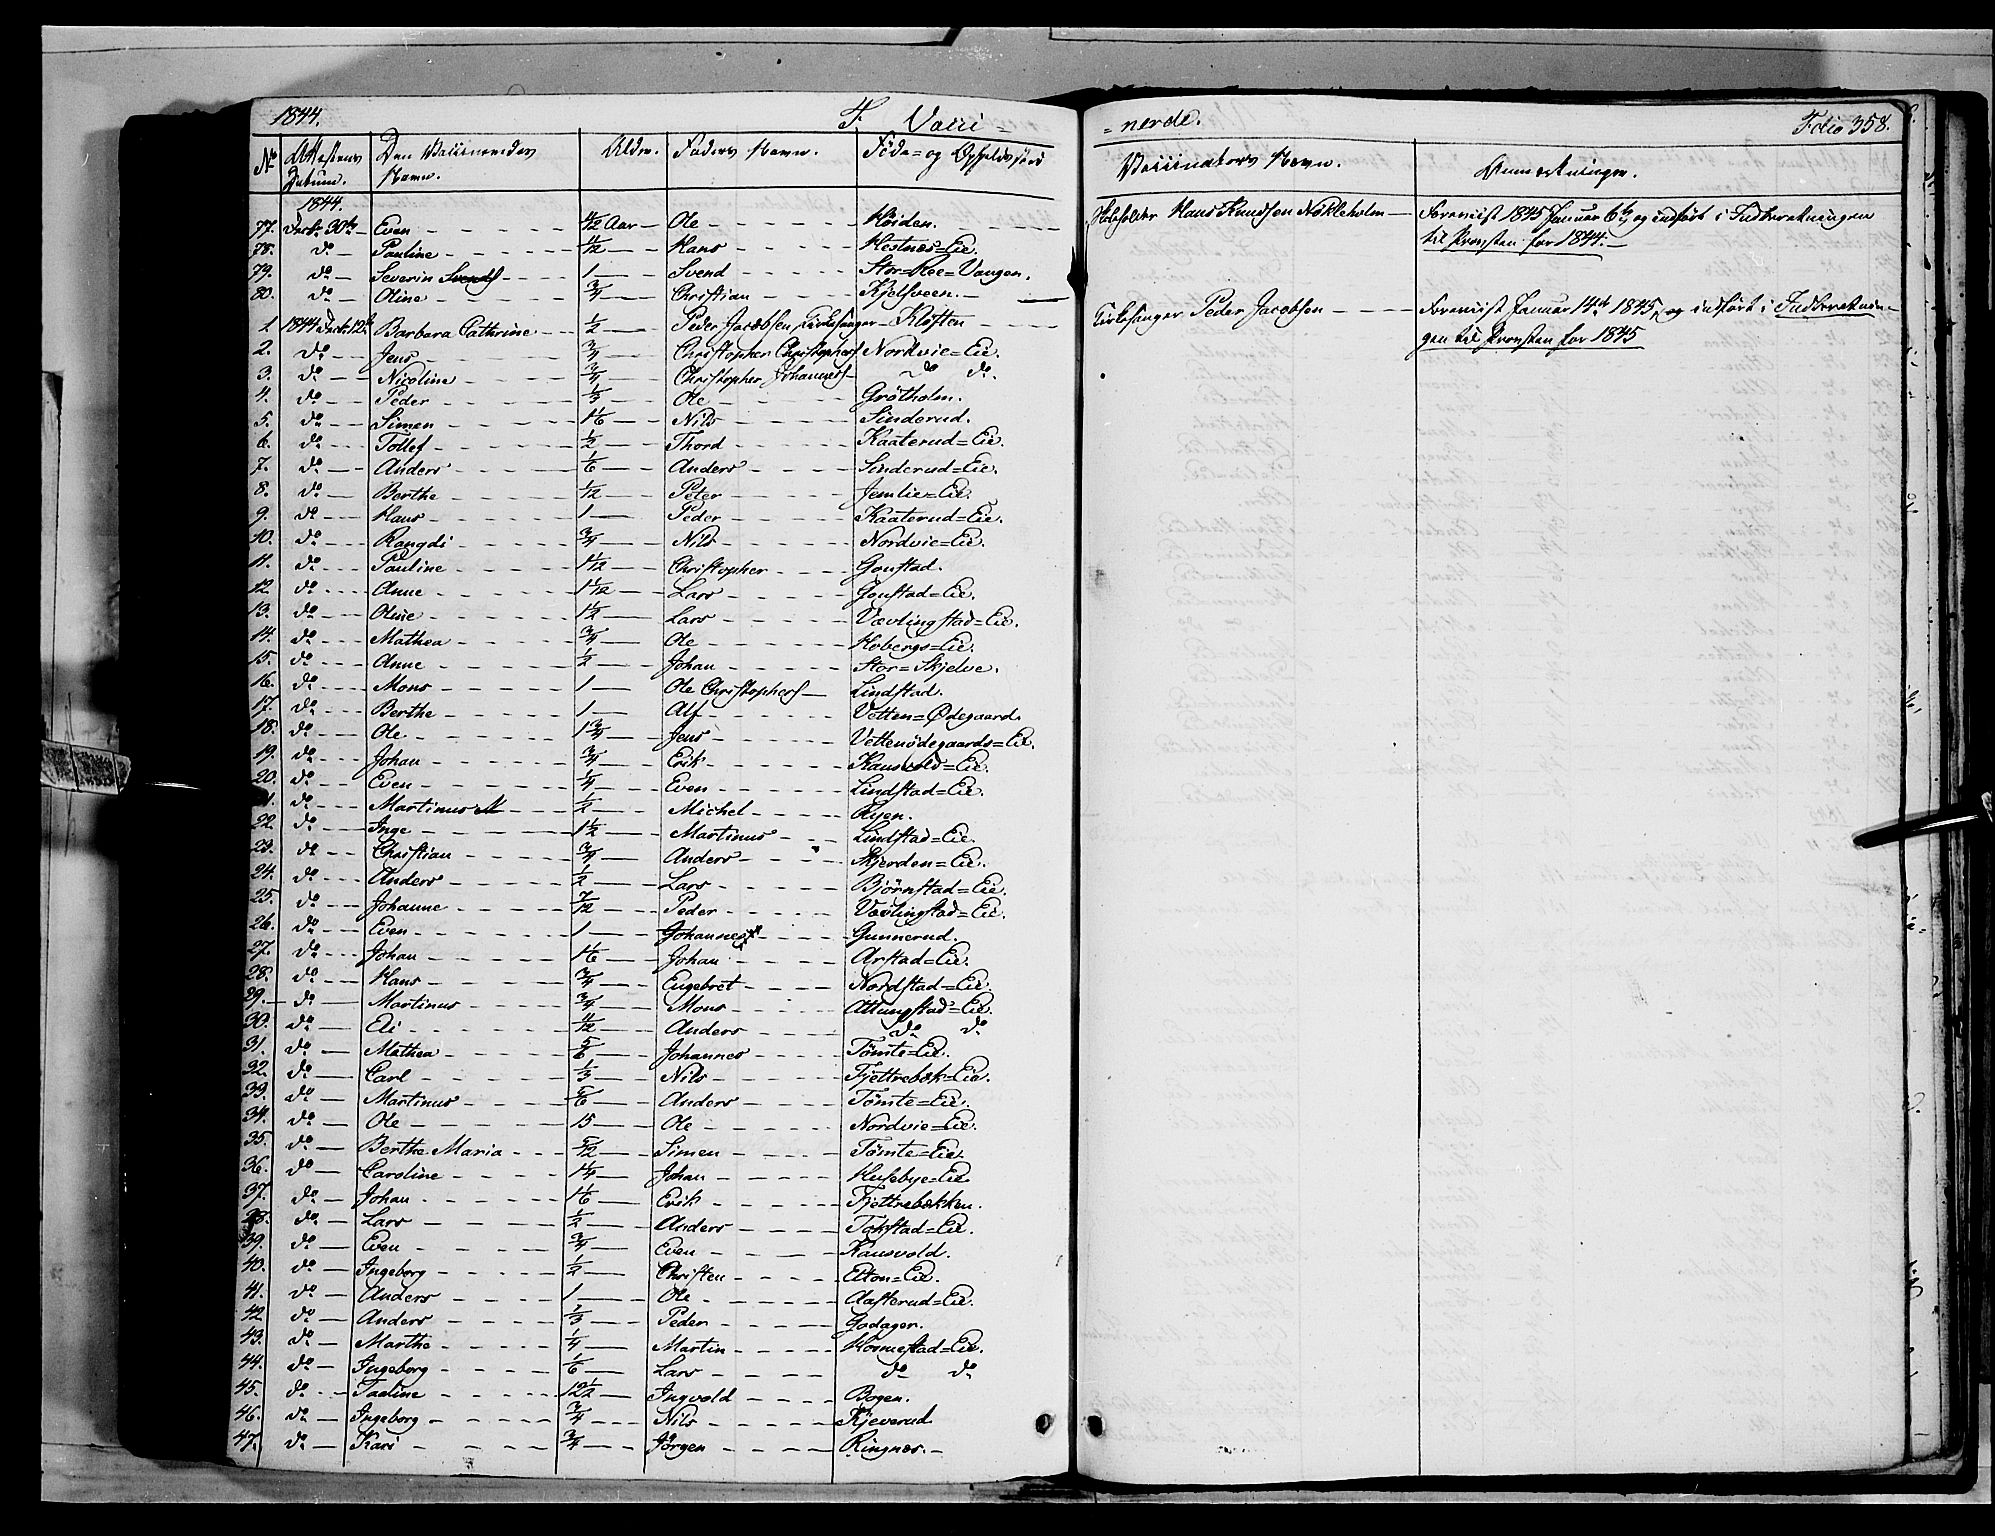 1844. F. Vacci= =nerde. Folio 358.
No Attestens Datum. Den Vaccineredes Navn. Alder. Faders Navn. Føde= og Opholdssted Vaccinators Navn. Anmærkninger.
1844.
77. Octr. 30te Even 4/12 Aar Ole Høiden. Skoleholder Hans Knudsen Nökleholm Foreviist 1845 Januar 6te og indført i Indberetningen
til Provsten for 1844.
78. do Pauline 4/12 Hans Hestnæs=Eie.
79. do Severin 1 Svend Stor=Roe=Vangen.
80. do Oline 3/4 Christian Kjelsveen.
1. 1844 Octr. 12te Barbara Cathrine 1/2 Peder Jacobsen, Kirkesanger Kløften Kirkesanger Peder Jacobsen Foreviist Januar 14de 1845, og indført i Indberetnin-
gen til Provsten for 1845
2. do Jens 3/4 Christopher Christophers Nordvie=Eie.
3. do Nicoline 3/4 Christopher Johannes do do.
4. do Peder 1/3 Ole Grötholm.
5. do Simen 1 1/6 Nils Sinderud.
6. do Tollef 1/2 Thord Kaaterud=Eie.
7. do Anders 1/6 Anders Sinderud=Eie.
8. do Berthe 1/12 Peter Jemlie=Eie.
9. do Hans 1 Peder Kaaterud=Eie.
10. do Rangdi 3/4 Nils Nordvie=Eie.
11. do Pauline 1 1/12 Christopher Gonstad.
12. do Anne 1 1/12 Lars Gonstad=Eie.
13. do Oline 1 1/2 Lars Vævlingstad=Eie.
14. do Mathea 3/4 Ole Hobergs=Eie.
15. do Anne 1/2 Johan Stor=Skjelve.
16. do Mons 1 Ole Christophers Lindstad.
17. do Berthe 1 Alf Vetten=Ødegaard.
18. do Ole 1 3/4 Jens Vettenødegaards=Eie.
19. do Johan 3/4 Erik Kausvold=Eie.
20. do Even 1/4 Even Lindstad=Eie.
21. do Martinus 1/2 Michel Ryen.
22. do Inge 1 1/2 Martinus Lindstad=Eie.
23. do Christian 3/4 Anders Skjerden=Eie.
24. do Anders 1/2 Lars Bjørnstad=Eie.
25. do Johanne 7/12 Peder Vævlingstad=Eie.
26. do Even 1 Johannes Gunnerud.
27. do Johan 1 1/6 Johan Arstad=Eie.
28. do Hans 3/4 Engebret Nordstad=Eie.
29. do Martinus 3/4 Mons Attungstad=Eie.
30. do Eli 11/12 Anders do do
31. do Mathea 5/6 Johannes Tømte=Eie.
32. do Carl 1/3 Nils Fjettrebæk=Eie.
33. do Martinus 5/6 Anders Tømte=Eie.
34. do Ole 15 Ole Nordvie=Eie.
35. do Berthe Maria 5/12 Simen Tømte=Eie.
36. do Caroline 1 1/4 Johan Husebye=Eie
37. do Johan 1 1/6 Erik Fjettrebækken.
38. do Lars 1/2 Anders Tokstad=Eie.
39. do Even 3/4 Even Kausvold.
40. do Ingeborg 1/2 Christen Elton=Eie.
41. do Anders 1 Ole Aasterud=Eie.
42. do Anders 2/3 Peder Godager.
43. do Marthe 1/4 Martin Hornestad=Eie.
44. do Ingeborg 1/6 Lars do do
45. do Pauline 12 1/2 Ingvold Bogen.
46. do Ingeborg 3/4 Nils Kjeverud
47. do Kari 3/4 Jörgen Ringnæs.